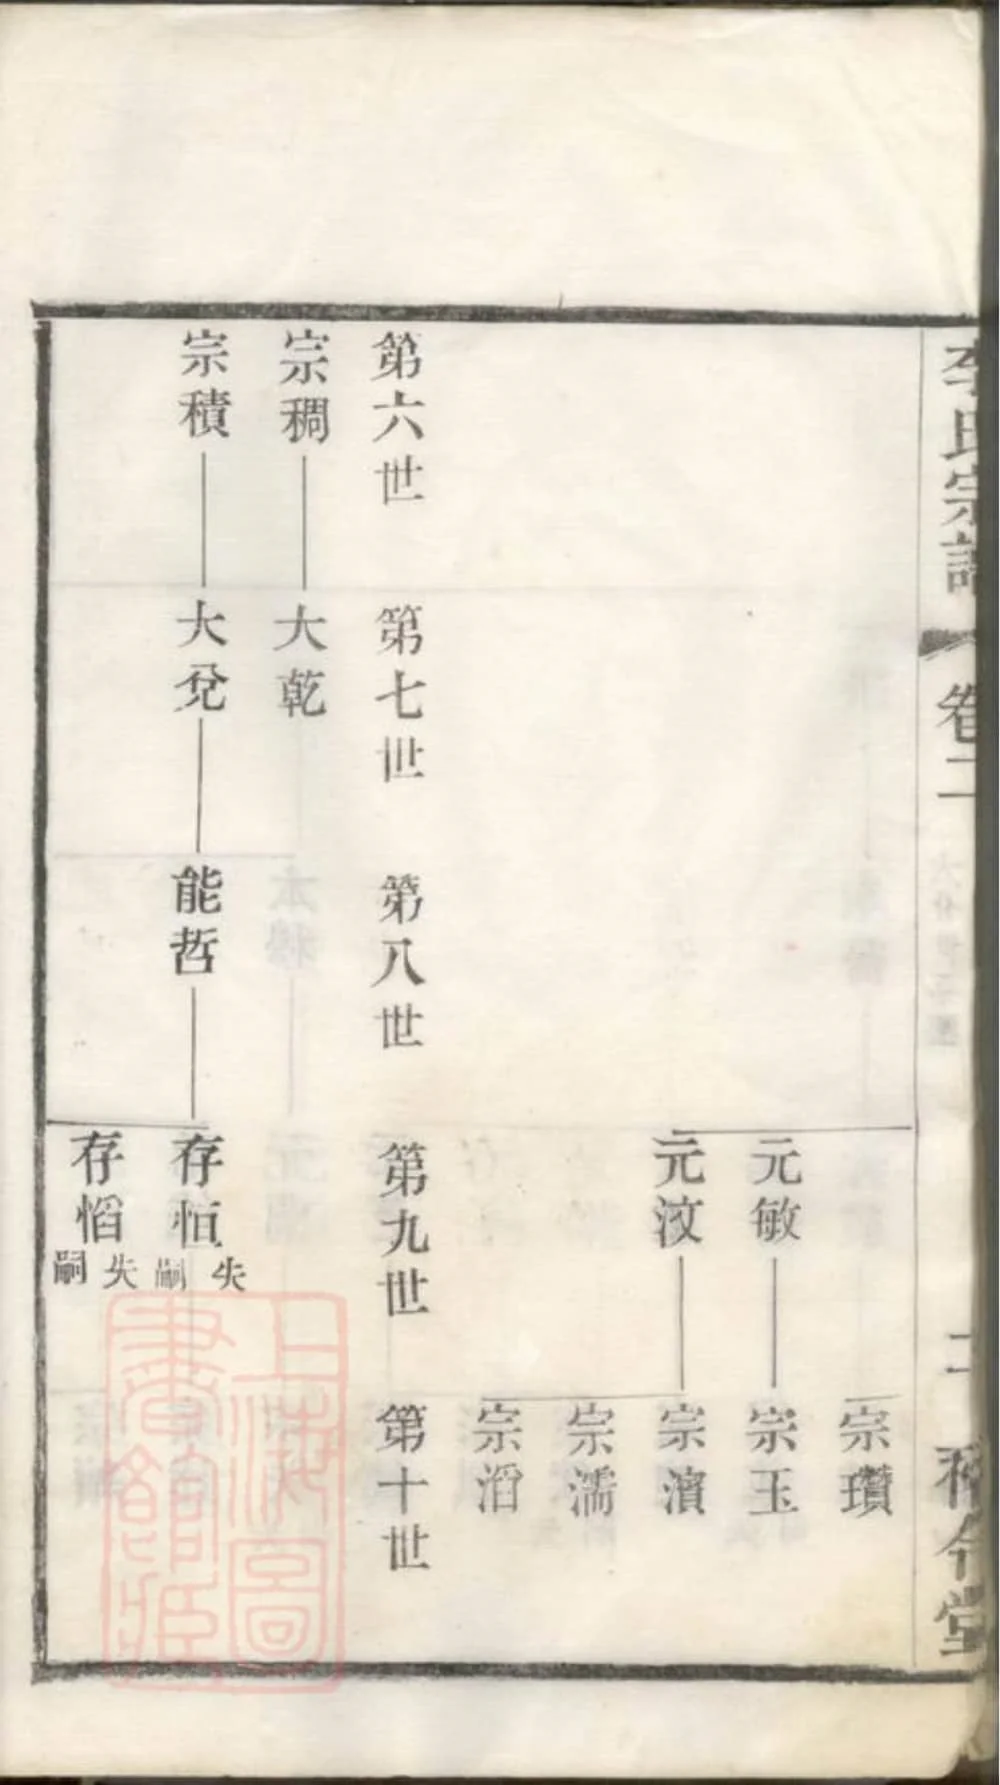 李氏宗譜
卷二
二
宗瓚
元敏
宗玉
元汶
宗濱
宗濡
宗滔
第六世
第七世
第八世
第九世
第十世
宗稠
大乾
宗積
大兌
能哲
存恒
失嗣
存慆
失嗣
上海圖
書館藏